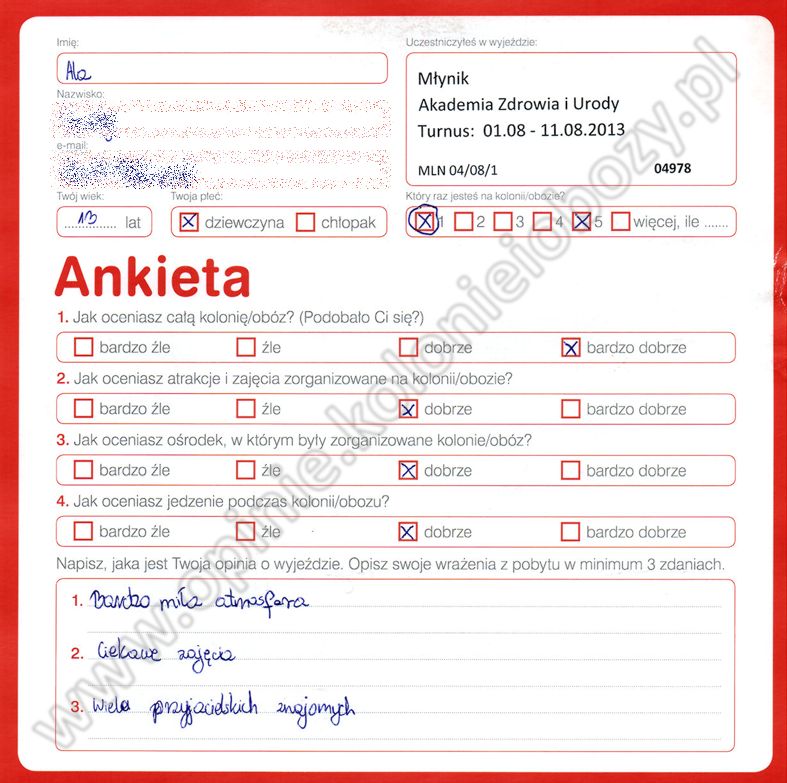 Imię:
Ala
Uczestniczyłeś w wyjeździe:
Młynik
Akademia Zdrowia i Urody
Turnus: 01.08 - 11.08.2013
MLN 04/08/1 04978
Nazwisko:
e-mail:
Twój wiek:
13 lat
Twoja płeć:
dziewczyna chłopak
Który raz jesteś na kolonii/obozie?
1 2 3 4 5 więcej, ile .......
Ankieta
1. Jak oceniasz całą kolonię/obóz? (Podobało Ci się?)
bardzo źle źle dobrze bardzo dobrze
2. Jak oceniasz atrakcje i zajęcia zorganizowane na kolonii/obozie?
bardzo źle źle dobrze bardzo dobrze
3. Jak oceniasz ośrodek, w którym były zorganizowane kolonie/obóz?
bardzo źle źle dobrze bardzo dobrze
4. Jak oceniasz jedzenie podczas kolonii/obozu?
bardzo źle źle dobrze bardzo dobrze
Napisz, jaka jest Twoja opinia o wyjeździe. Opisz swoje wrażenia z pobytu w minimum 3 zdaniach.
1. Bardzo miła atmosfera
2. Ciekawe zajęcia
3. Wiele przyjacielskich znajomych
www.opinie.kolonieiobozy.pl